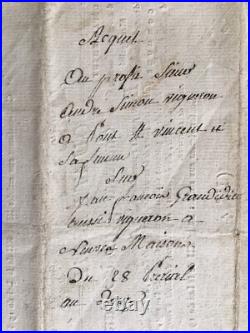 Acquet
Au profit Sieur
andre Simon vigneron
a Pont St vincent et
Sa femme
Sur
Jean francois
aussi vigneron a
neuves Maisons
Du 28
au